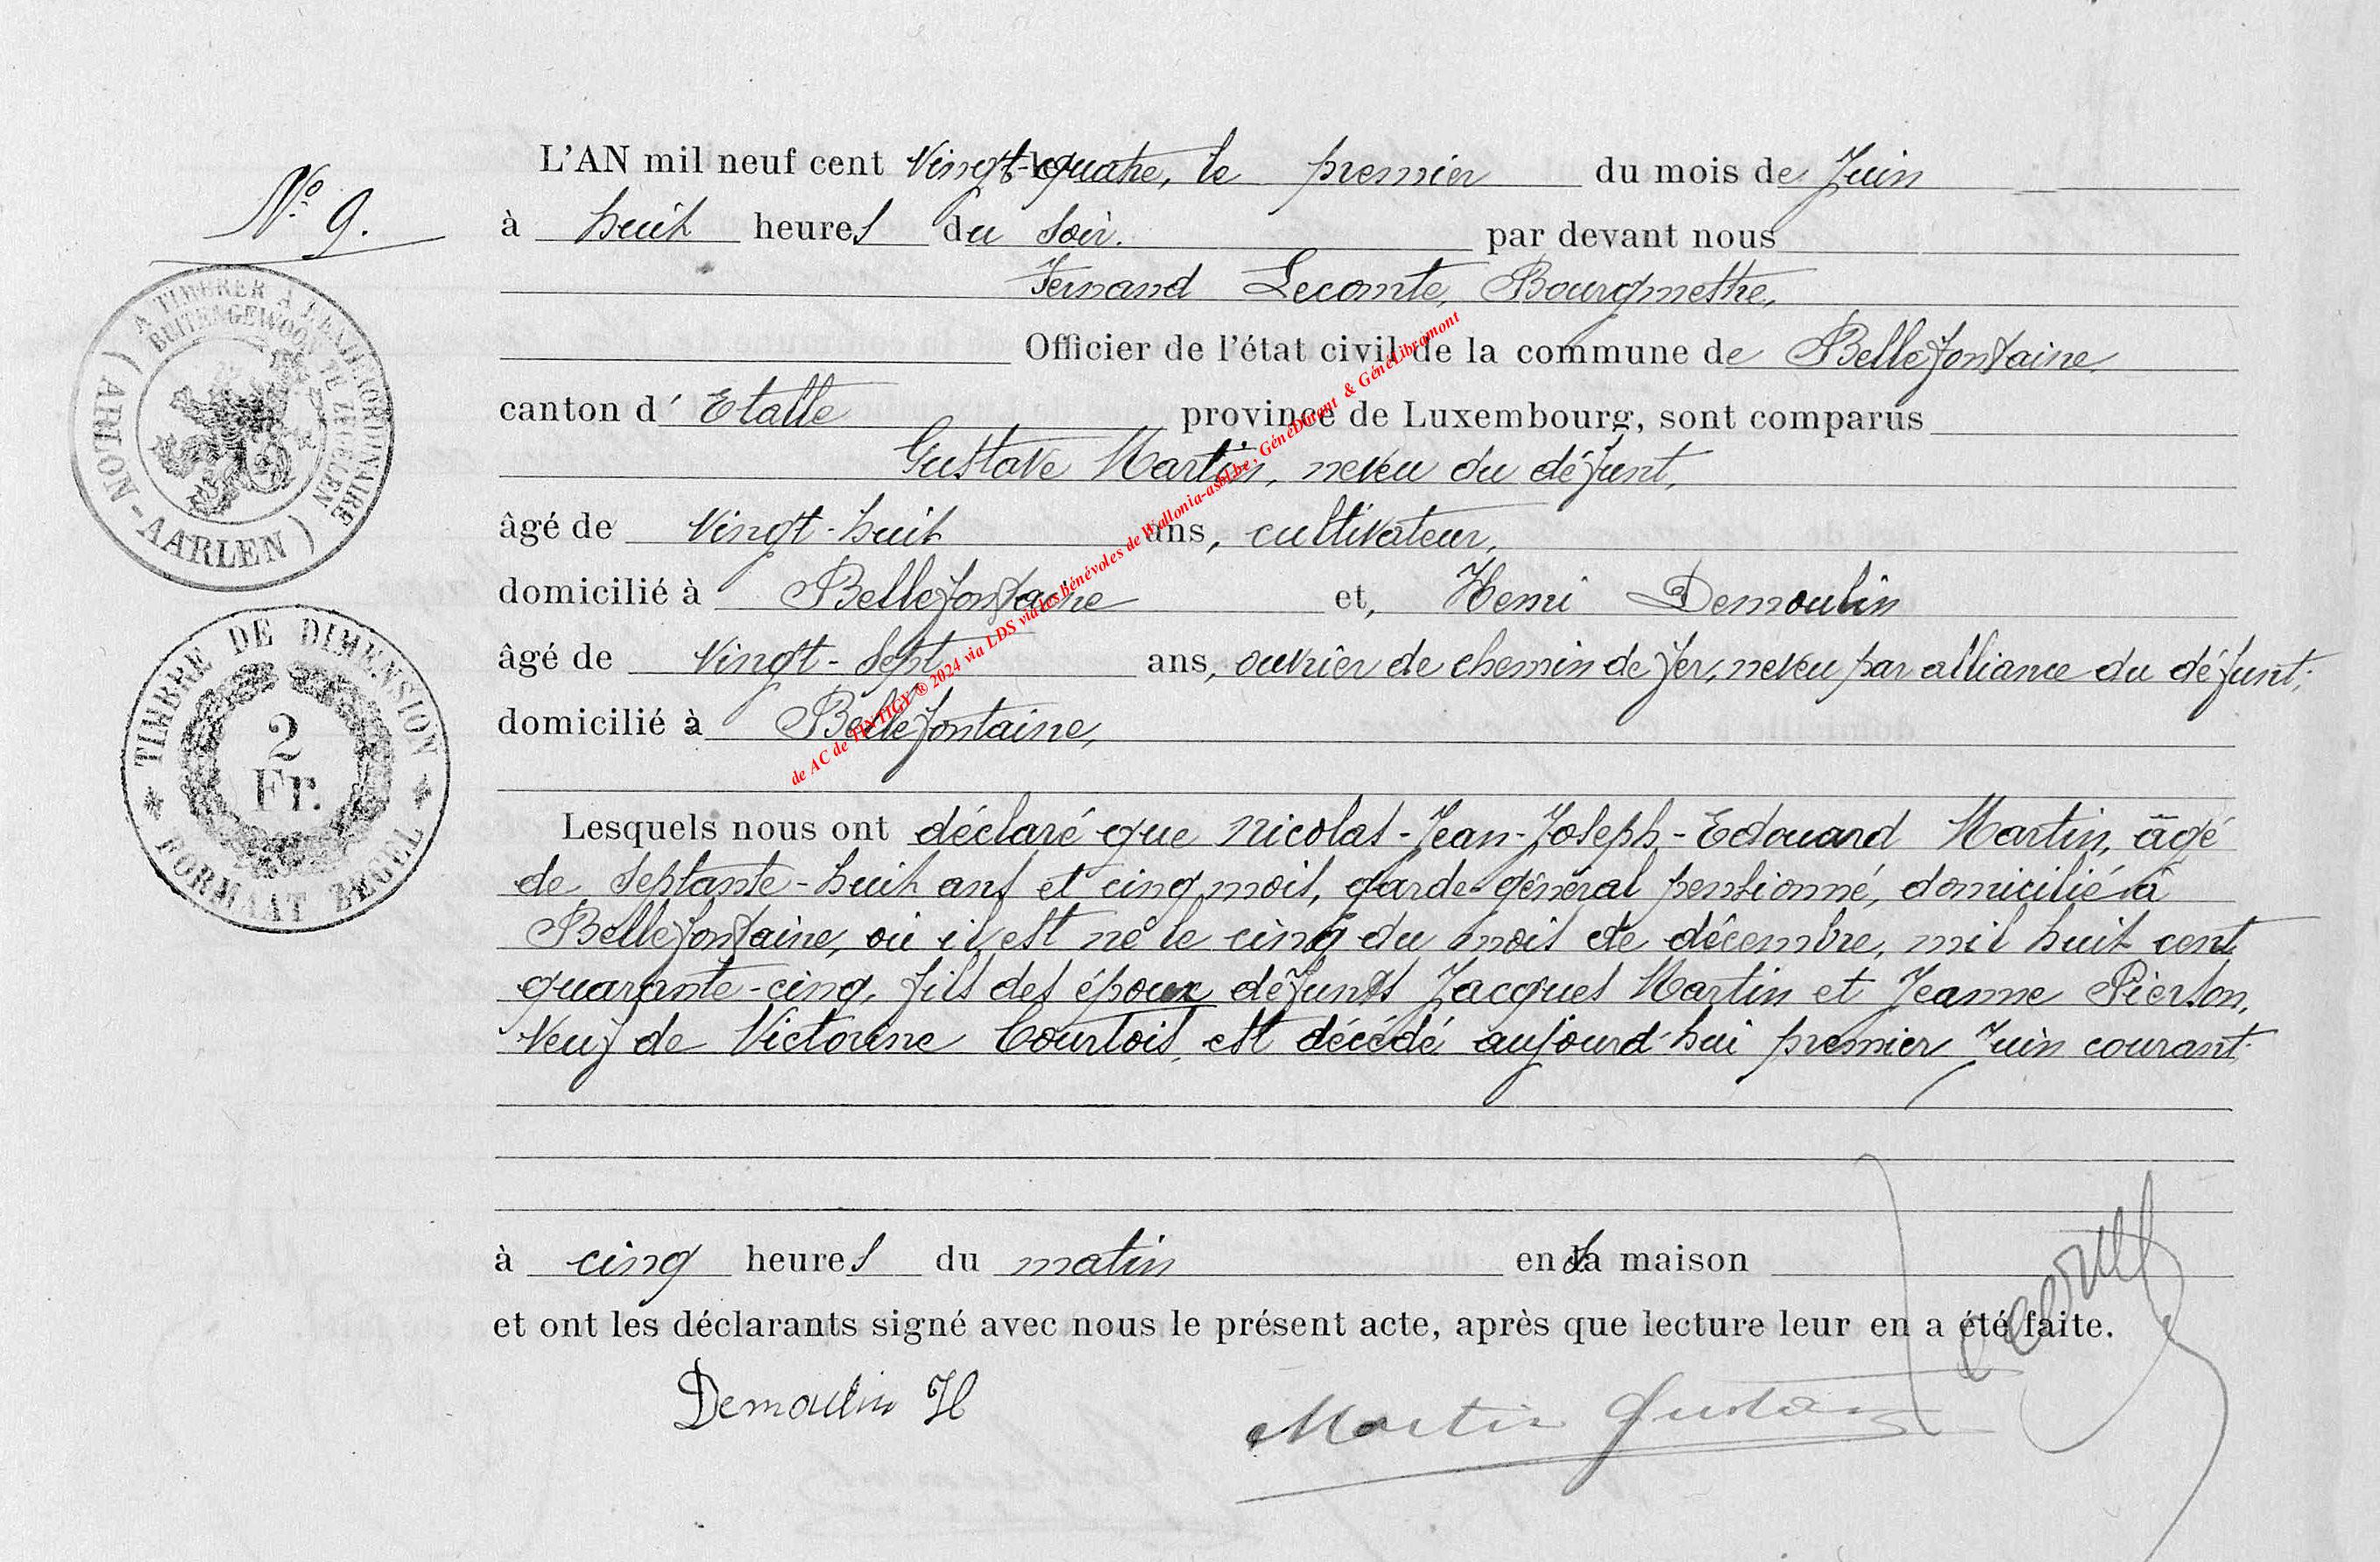 N° 9.
L'AN mil neuf cent Vingt-quatre, le premier du mois de Juin
à huit heures du soir. par devant nous
Fernand Lecomte, Bourgmestre,
Officier de l'état civil de la commune de Bellefontaine
canton d'Etalle province de Luxembourg, sont comparus
Gustave Martin, neveu du défunt,
âgé de Vingt-huit ans, cultivateur,
domicilié à Bellefontaine et, Henri Demoulin
âgé de Vingt-sept ans, ouvrier de chemin de fer, neveu par alliance du défunt;
domicilié à Bellefontaine,
Lesquels nous ont déclaré que Nicolas-Jean-Joseph-Edouard Martin, âgé
de septante-huit ans et cinq mois, garde-général pensionné, domicilié à
Bellefontaine, où il est né le cinq du mois de décembre, mil huit cent
quarante-cinq, fils des époux défunts Jacques Martin et Jeanne Pierson,
Veuf de Victorine Courtois, est décédé aujourd'hui premier Juin courant
à cinq heures du matin en sa maison
et ont les déclarants signé avec nous le présent acte, après que lecture leur en a été faite.
Demoulin H
Martin Gustave
A TIMBRER A L'EXTRAORDINAIRE
BUITENGEWOON TE ZEGELEN
(ARLON-AARLEN)
TIMBRE DE DIMENSION
2
Fr.
FORMAAT ZEGEL
de AC de TINTIGY ® 2024 via LDS via les bénévoles de Wallonia-asbl.be, GénéDinant & GénéLibramont